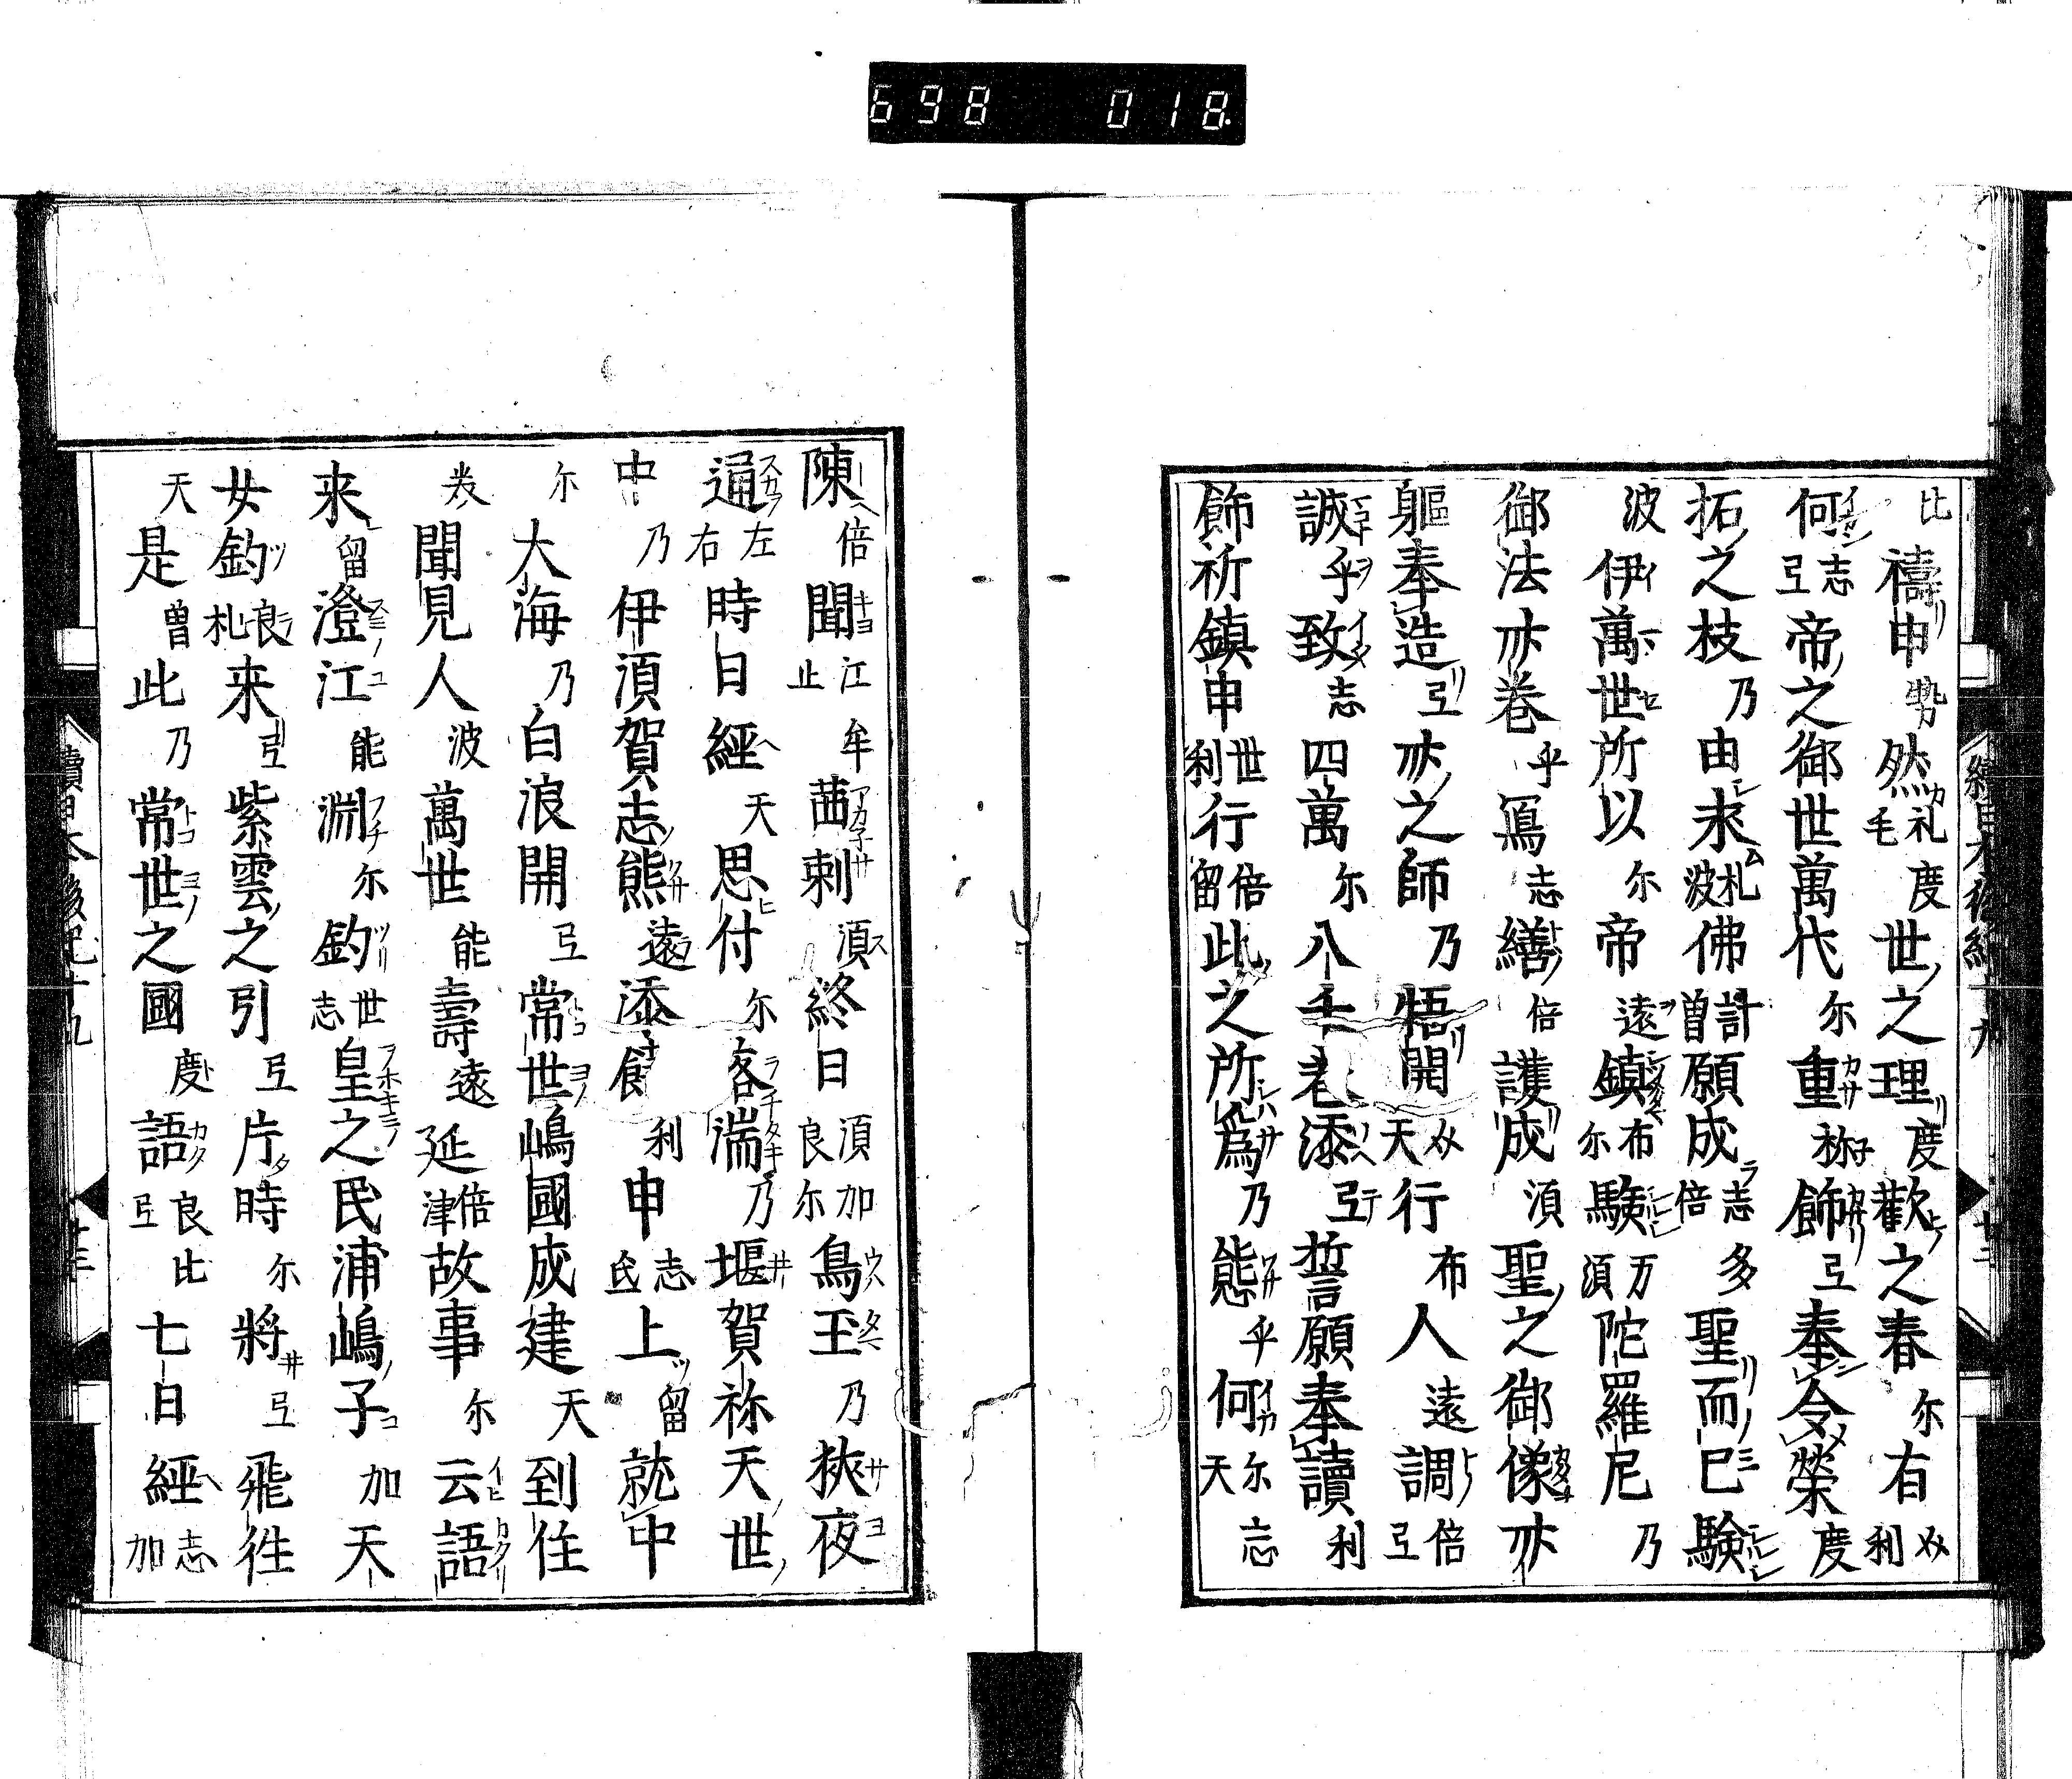 698 018
比禱申勢然礼毛度世之理度歓之春尓有メ利
何志弖帝之御世萬代尓重祢飾弖奉令榮度
拓之枝乃由求礼波佛計曽願成志倍多聖而巳験
波伊萬世所以尓帝遠鎮布尓験万須陀羅尼乃
御法亦巻乎寫志繕倍護成須聖之御像亦
軀奉造弖亦之師乃悟開メ天行布人遠調倍弖
誠乎致志四萬尓八千巻添弖誓願奉讀利
飾祈鎮申世利行倍留此之所爲乃態乎何尓天忘
陳倍聞江止牟茜刺須終日須加良尓烏玉乃狭夜
通左右時日經天思付尓咨湍乃堰賀祢天世
中乃伊須賀志態遠添飾利申志弖上留就中
尓大海乃白浪開弖常世嶋國成建天到住
美聞見人波萬世能壽遠延倍津故事尓云語
来留澄江能淵尓釣世志皇之民浦嶋子加天
女釣良礼来弖紫雲之引弖片時尓將弖飛往
天是曽此乃常世之國度語良比弖七日經志加